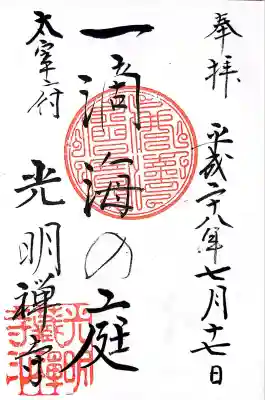 奉拝
平成二十八年七月十七日
一滴海の庭
太宰府
光明禅寺